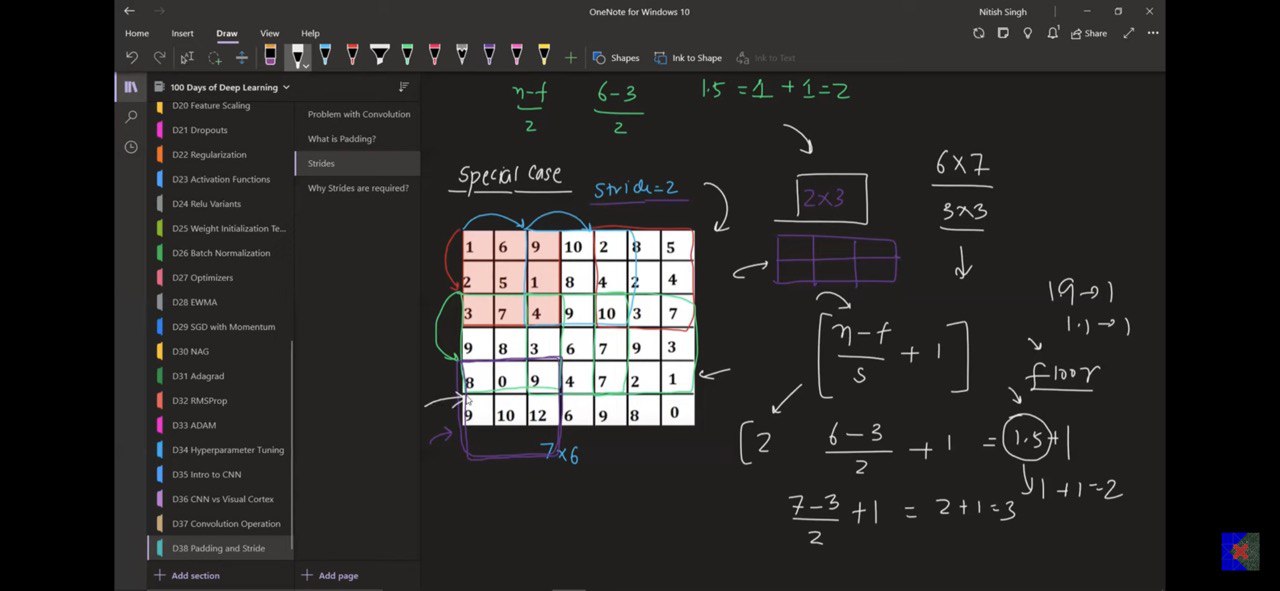 OneNote for Windows 10
Nitish Singh
Home Insert Draw View Help
Shapes Ink to Shape Ink to Text
Share
100 Days of Deep Learning
D20 Feature Scaling
D21 Dropouts
D22 Regularization
D23 Activation Functions
D24 Relu Variants
D25 Weight Initialization Te...
D26 Batch Normalization
D27 Optimizers
D28 EWMA
D29 SGD with Momentum
D30 NAG
D31 Adagrad
D32 RMSProp
D33 ADAM
D34 Hyperparameter Tuning
D35 Intro to CNN
D36 CNN vs Visual Cortex
D37 Convolution Operation
D38 Padding and Stride
Add section
Problem with Convolution
What is Padding?
Strides
Why Strides are required?
Add page
n-f 6-3 1.5 = 1 + 1 = 2
2 2
Special Case
Stride=2
2×3
6×7
3×3
1 6 9 10 2 8 5
2 5 1 8 4 2 4
3 7 4 9 10 3 7
9 8 3 6 7 9 3
8 0 9 4 7 2 1
9 10 12 6 9 8 0
7×6
[n-f
s + 1]
1.9→1
1.1→1
floor
[2 6-3
2 + 1 = 1.5+1
1+1=2
7-3
2 +1 = 2+1=3